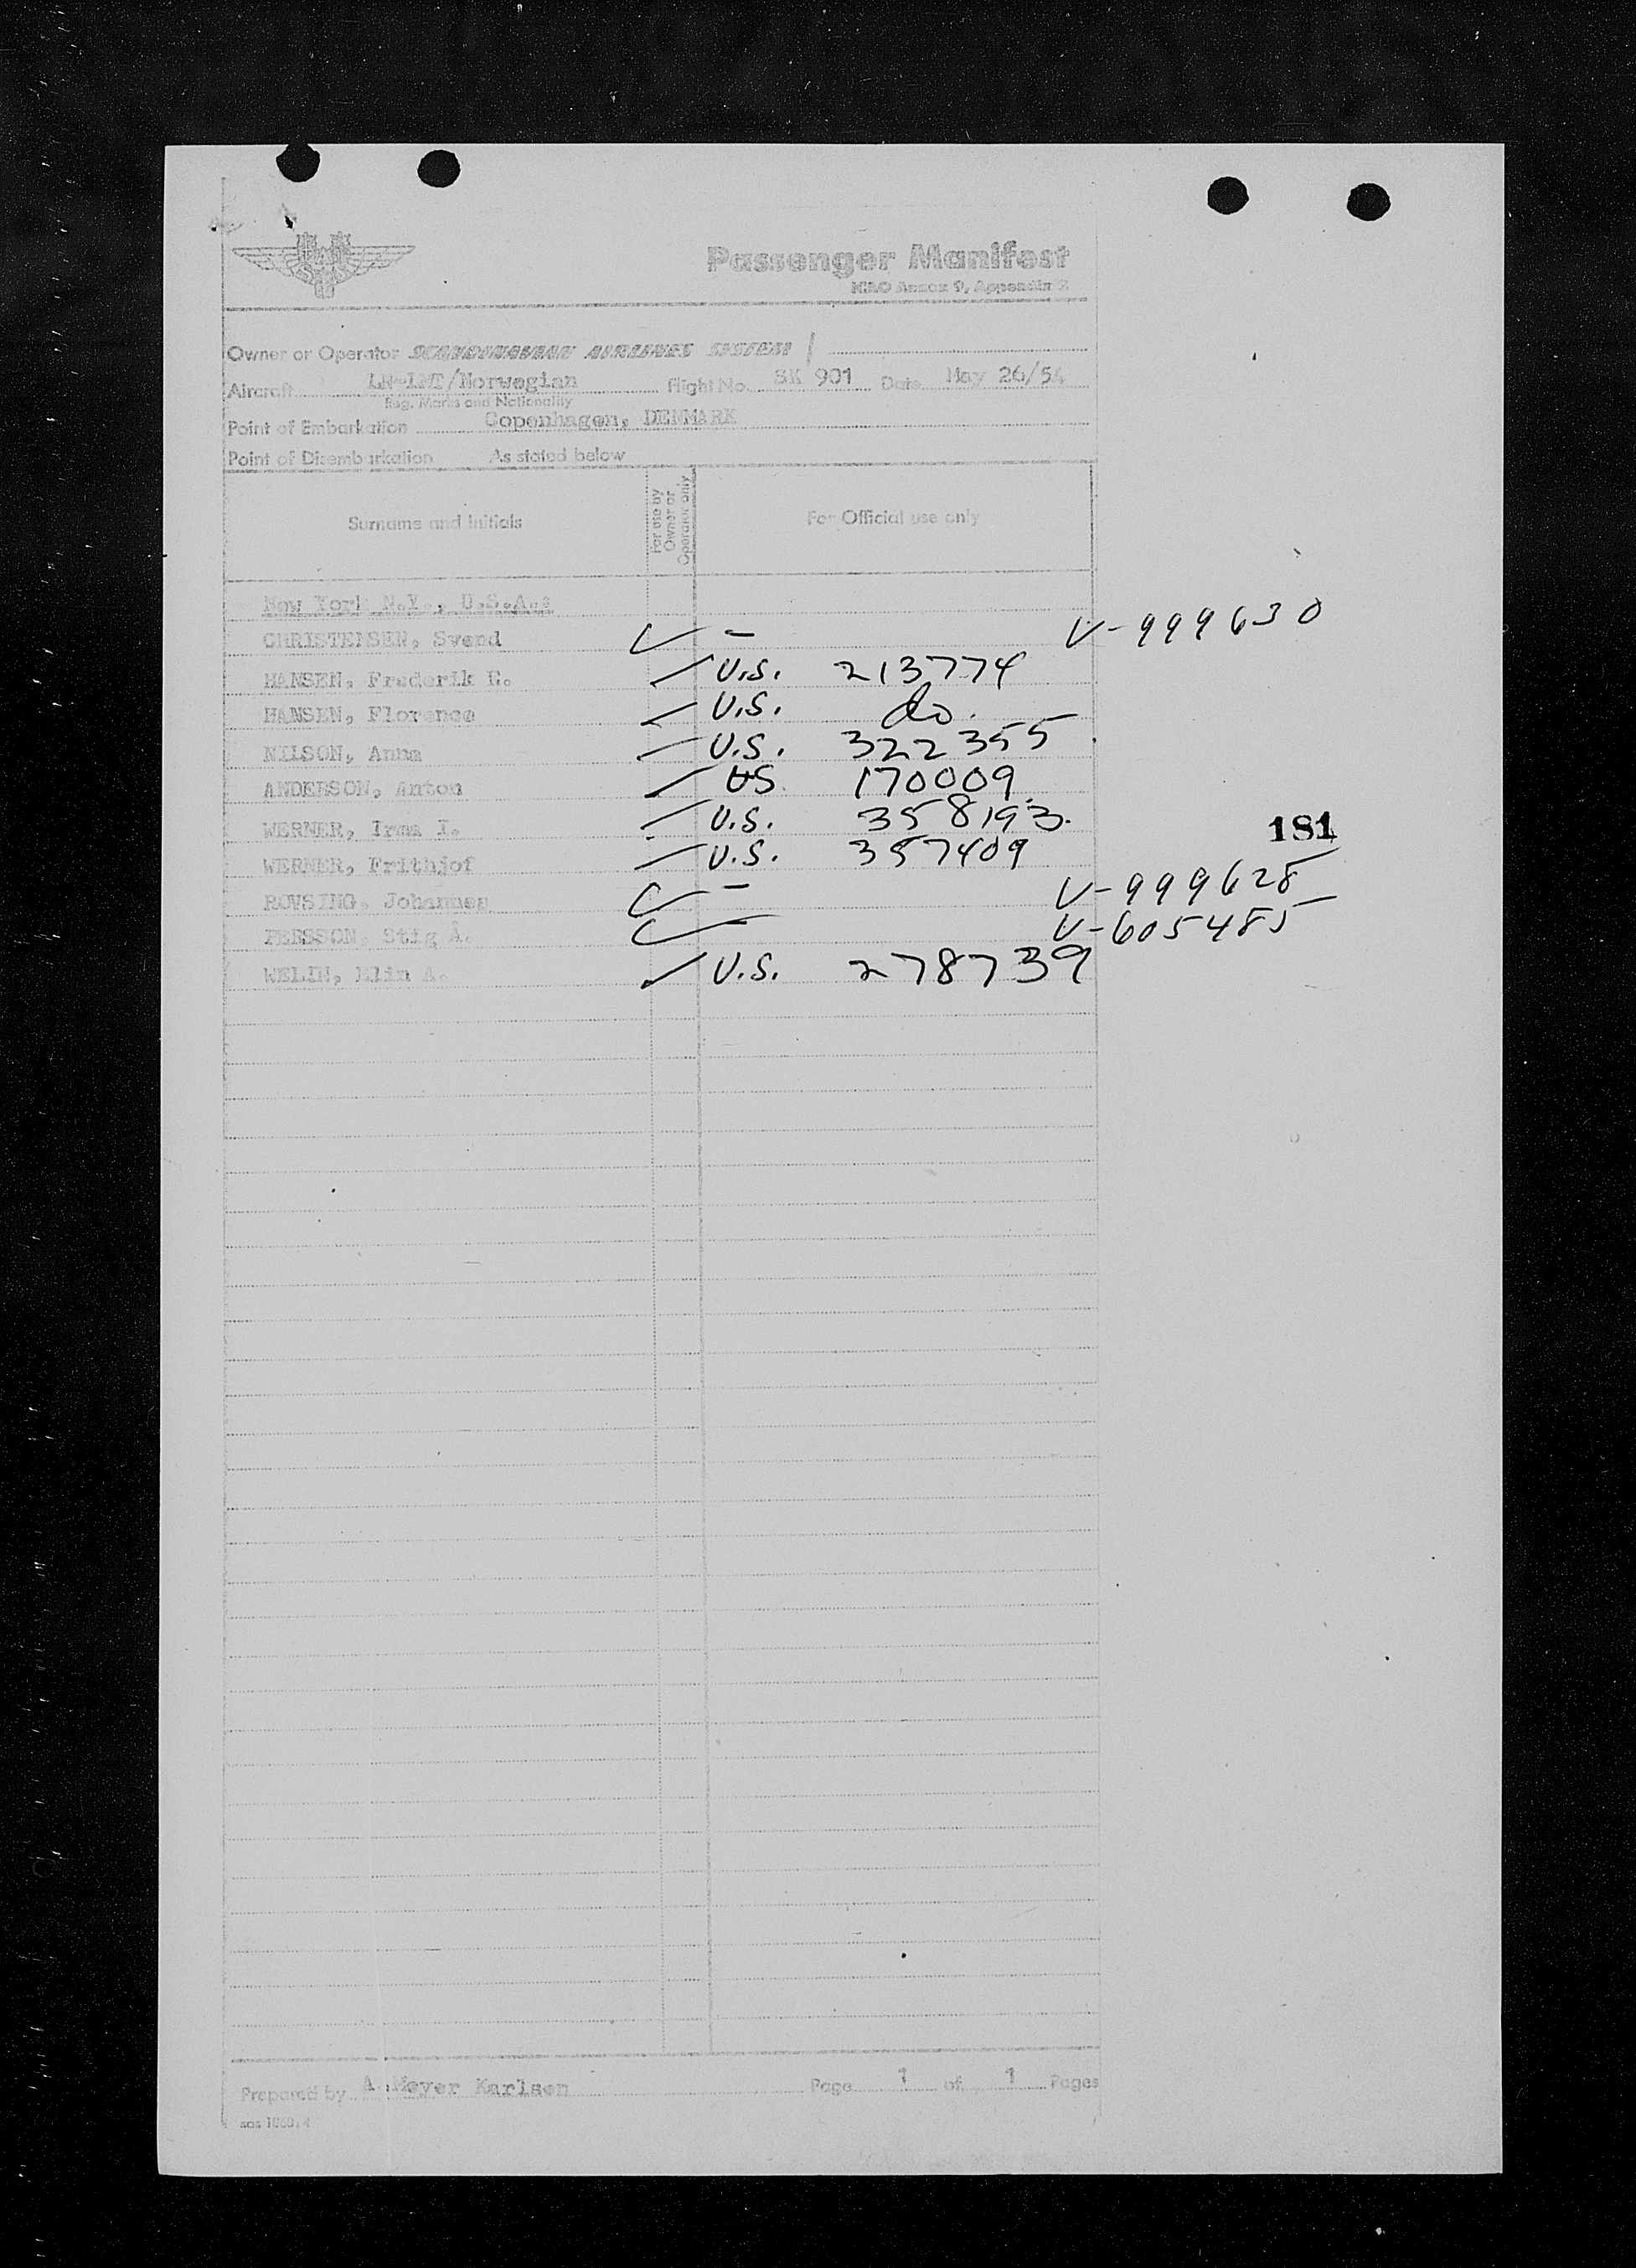 Passenger Manifest
ICAO Annex 9, Appendix 2
Owner or Operator SCANDINAVIAN AIRLINES SYSTEM /
Aircraft /Norwegian Flight No. SK 901 Date May 26/54
Reg. Marks and Nationality
Point of Embarkation Copenhagen, DENMARK
Point of Disembarkation As stated below
Surname and Initials For use by Owner or Operator only For Official use only
New York N.Y., U.S.A.:
CHRISTENSEN, Svend ✓ - V-999630
HANSEN, Frederik / U.S. 213774
HANSEN, Florence / U.S. do.
NILSON, Anna / U.S. 322355
ANDERSON, Anton / US. 170009
WERNER, Irma I. / U.S. 358193.
181
WERNER, Frithjof / U.S. 357409
ROVSING, Johannes ✓ - V-999628
PERSSON, Stig Å. ✓ - V-605485
WELIN, Elin A. / U.S. 278739
Prepared by A. Meyer Karlsen Page 1 of 1 Pages